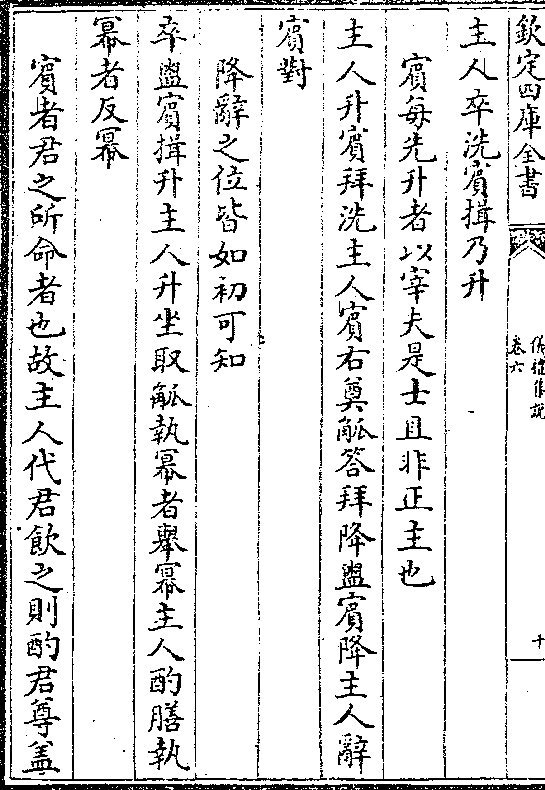 欽定四庫全書
儀禮集說
卷六
十
主人卒洗賓揖乃升
賓每先升者以宰夫是士且非正主也
主人升賓拜洗主人賓右奠觚答拜降盥賓降主人辭
賓對
降辭之位皆如初可知
卒盥賓揖升主人升坐取觚執冪者舉冪主人酌膳執
冪者反冪
賓者君之所命者也故主人代君飲之則酌君尊盖